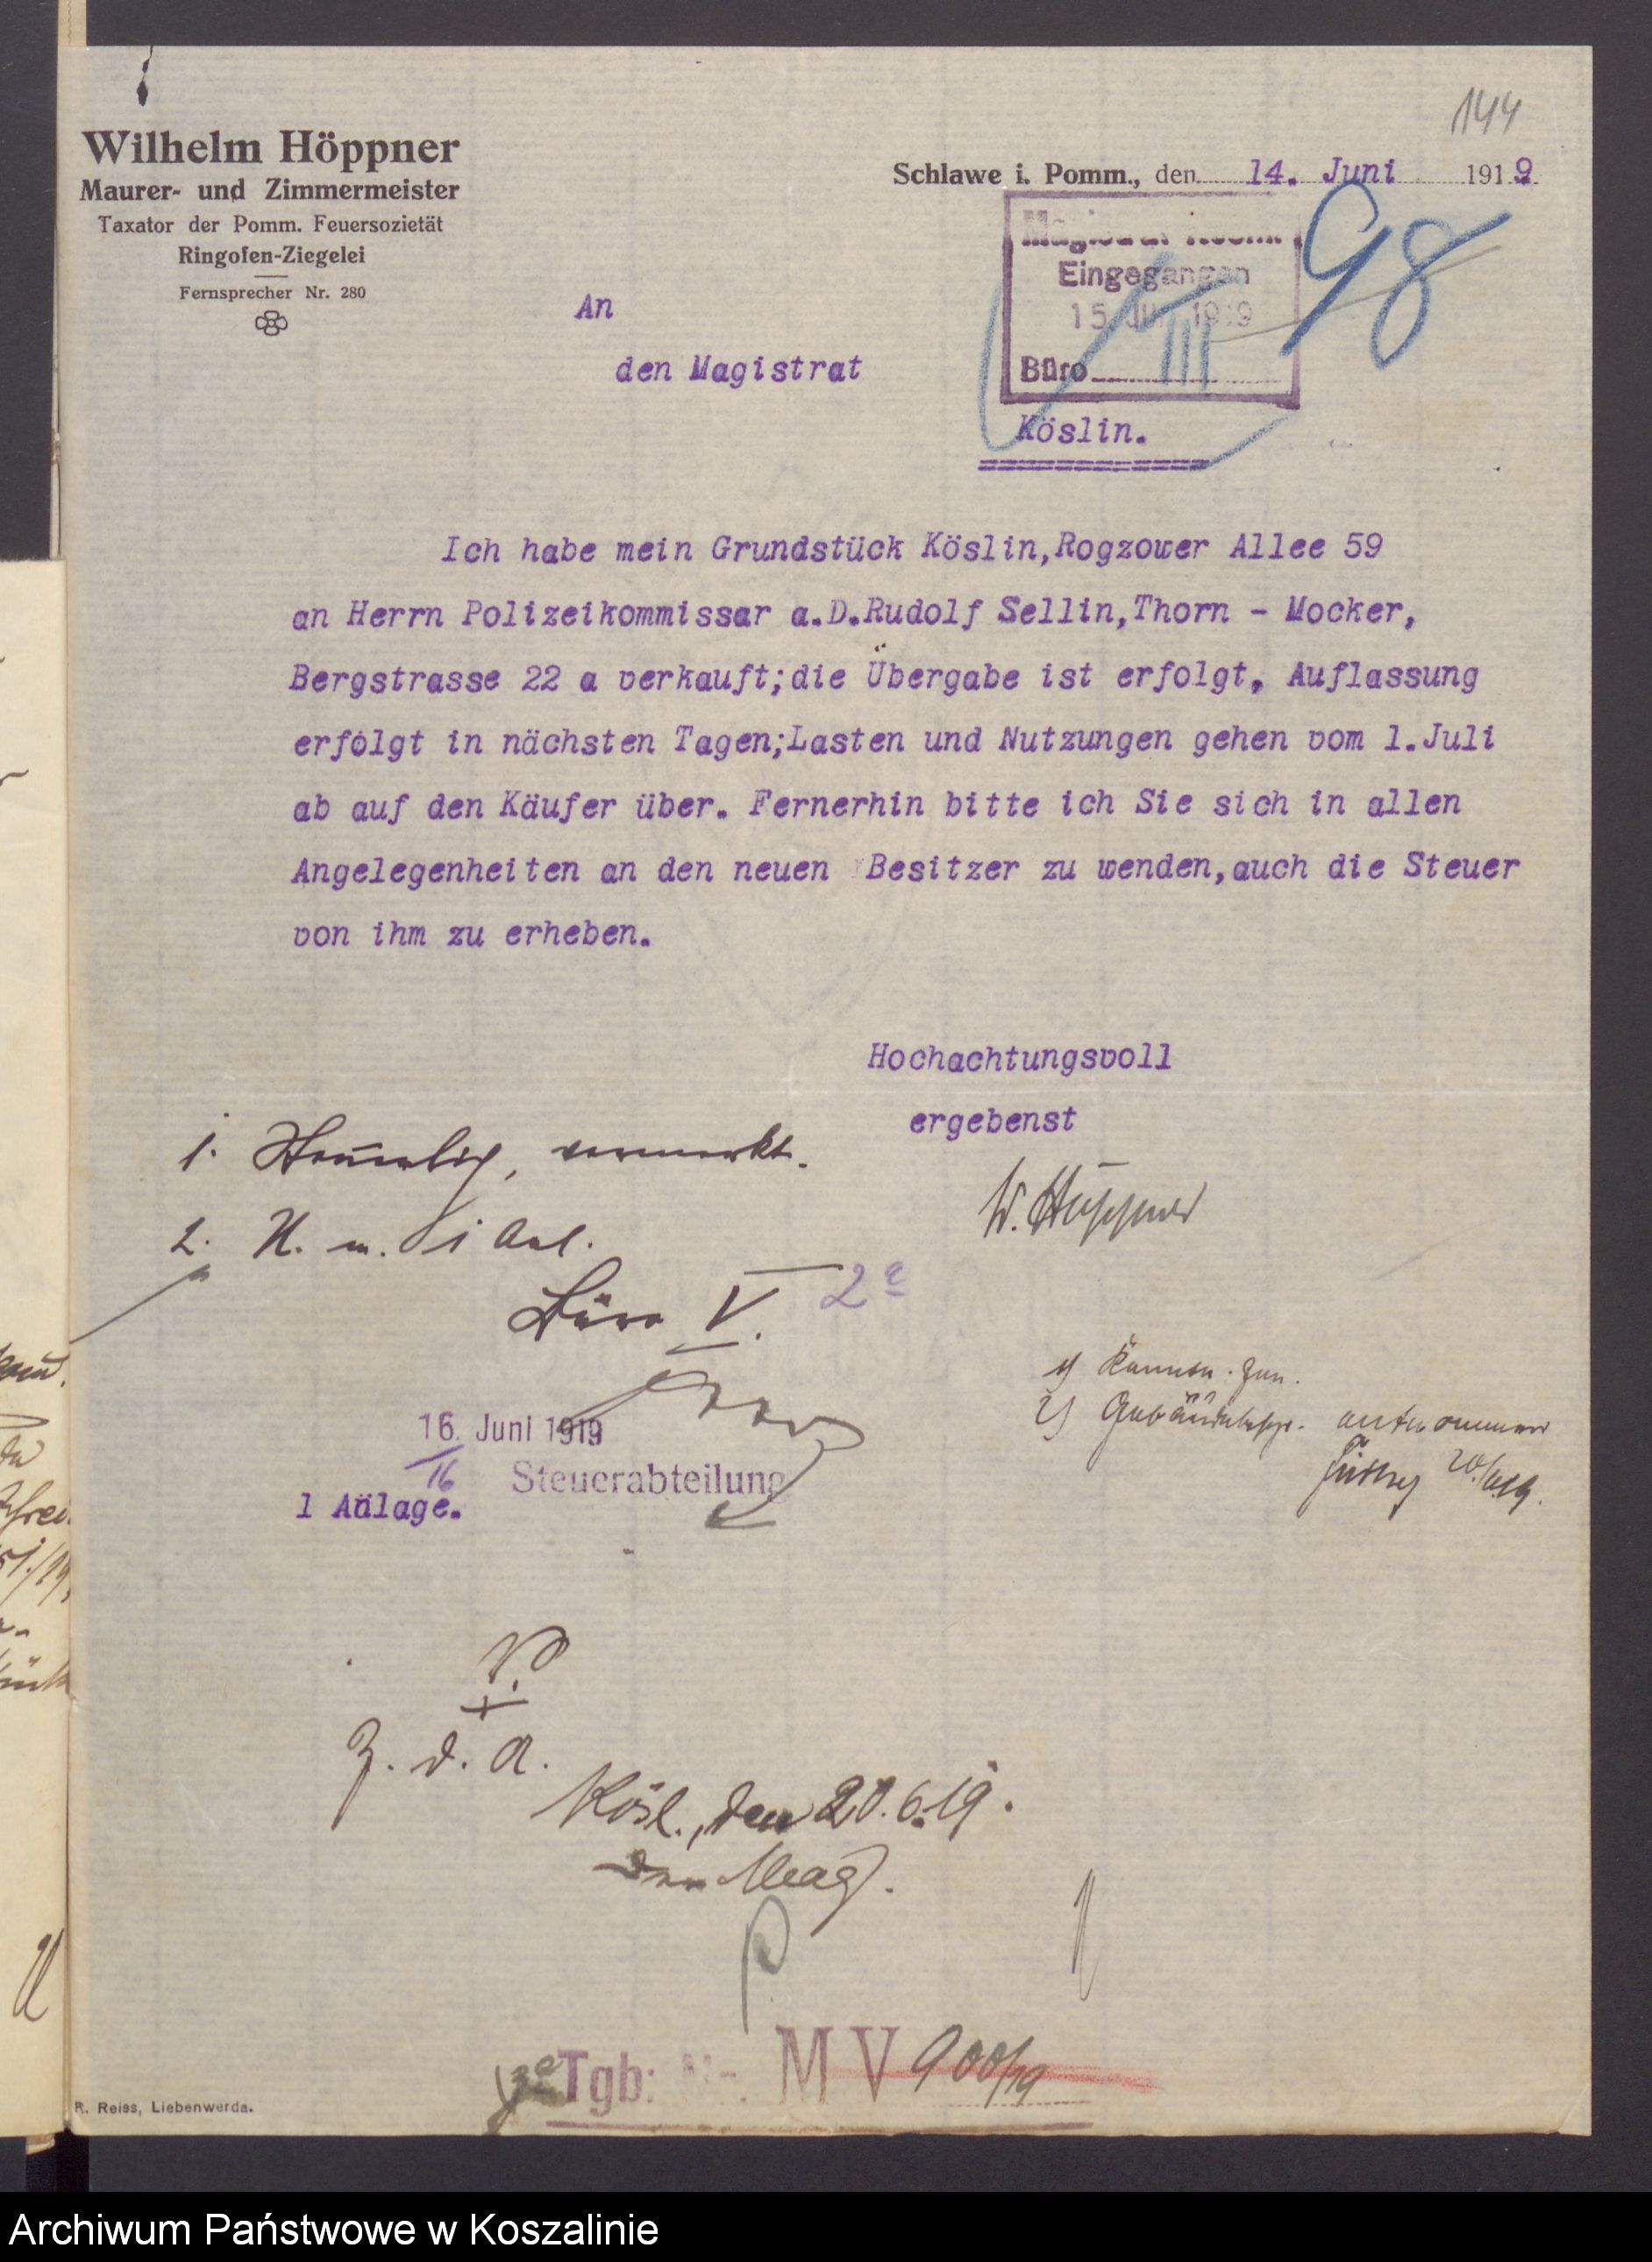 144
Wilhelm Höppner
Maurer- und Zimmermeister
Taxator der Pomm. Feuersozietät
Ringofen-Ziegelei
Fernsprecher Nr. 280
Schlawe i. Pomm., den 14. Juni 1919.
Eingegangen
15 1919
Büro III
98
An
den Magistrat
Köslin.
Ich habe mein Grundstück Köslin,Rogzower Allee 59
an Herrn Polizeikommissar a.D.Rudolf Sellin,Thorn - Mocker,
Bergstrasse 22 a verkauft;die Übergabe ist erfolgt, Auflassung
erfolgt in nächsten Tagen;Lasten und Nutzungen gehen vom 1.Juli
ab auf den Käufer über. Fernerhin bitte ich Sie sich in allen
Angelegenheiten an den neuen Besitzer zu wenden,auch die Steuer
von ihm zu erheben.
Hochachtungsvoll
ergebenst
W. Höppner
1. vermerkt.
2. U. m. 1 Anl.
Büro V. 2a
16. Juni 1919
16
Steuerabteilung
1 Anlage.
1)
2)
V.
Z. d. A.
Kösl., den 20.6.19.
Der Mag.
Tgb: Nr. M V 900/19
R. Reiss, Liebenwerda.
Archiwum Państwowe w Koszalinie